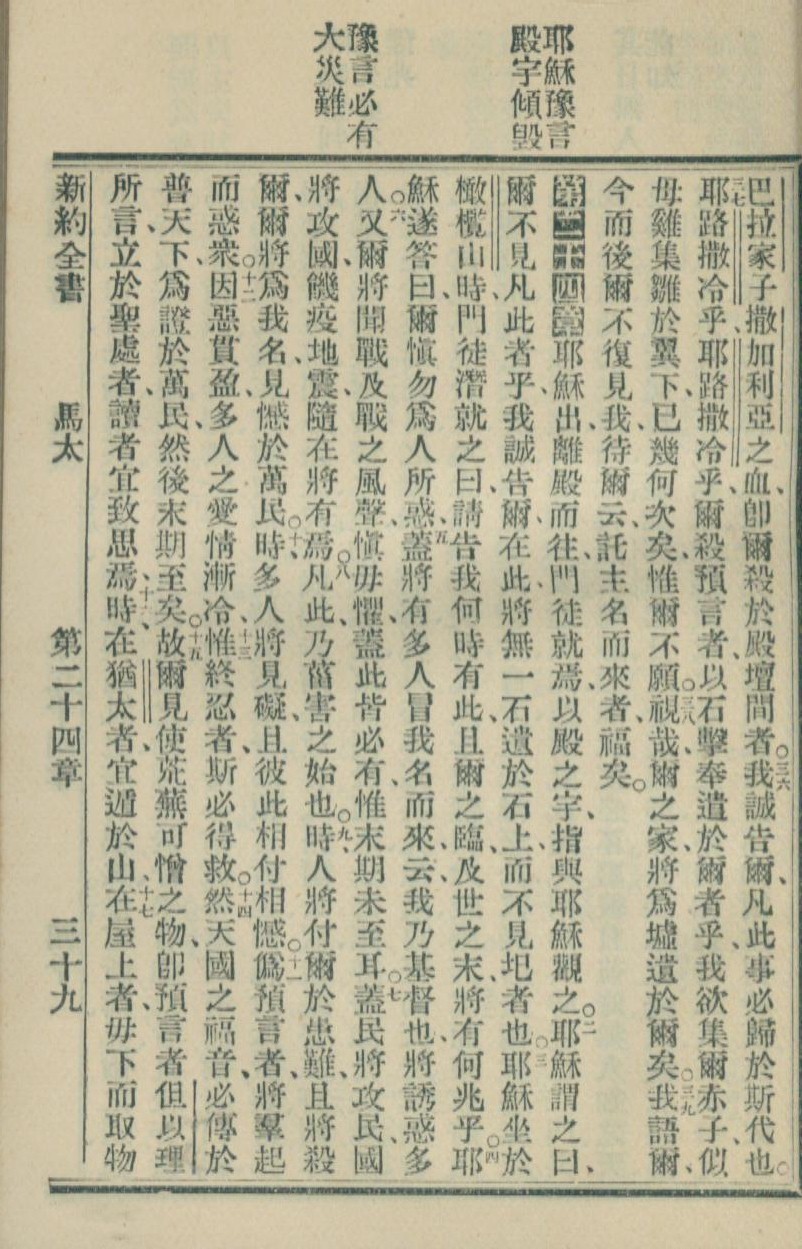 耶穌豫言
殿宇傾毀
豫言必有
大災難
巴拉家子撒加利亞之血、卽爾殺於殿壇間者。○三六我誠告爾、凡此事必歸於斯代也。
三七耶路撒冷乎、耶路撒冷乎、爾殺預言者、以石擊奉遣於爾者乎、我欲集爾赤子、似
母雞集雛於翼下、已幾何次矣、惟爾不願。○三八視哉、爾之家、將爲墟遺於爾矣。○三九我語爾、
今而後爾不復見我、待爾云、託主名而來者、福矣。
第二十四章耶穌出、離殿而往、門徒就焉、以殿之宇、指與耶穌觀之。○二耶穌謂之曰、
爾不見凡此者乎、我誠告爾、在此將無一石遺於石上、而不見圮者也。○三耶穌坐於
橄欖山時、門徒潛就之曰、請告我何時有此、且爾之臨、及世之末、將有何兆乎。○四耶
穌遂答曰、爾愼勿爲人所惑、五蓋將有多人冒我名而來、云、我乃基督也、將誘惑多
人。○六又爾將聞戰、及戰之風聲、愼毋懼、蓋此皆必有、惟末期未至耳。○七蓋民將攻民、國
將攻國、饑疫地震、隨在將有焉。○八凡此、乃菑害之始也。○九時、人將付爾於患難、且將殺
爾、爾將爲我名、見憾於萬民。○十時、多人將見礙、且彼此相付相憾。○十一僞預言者、將羣起
而惑衆。○十二因惡貫盈、多人之愛情漸冷、十三惟終忍者、斯必得救。○十四然天國之福音、必傳於
普天下、爲證於萬民、然後末期至矣。○十五故爾見使荒蕪可憎之物、卽預言者但以理
所言、立於聖處者、讀者宜致思焉、十六時、在猶太者、宜遁於山、十七在屋上者、毋下而取物
新約全書 馬太 第二十四章 三十九